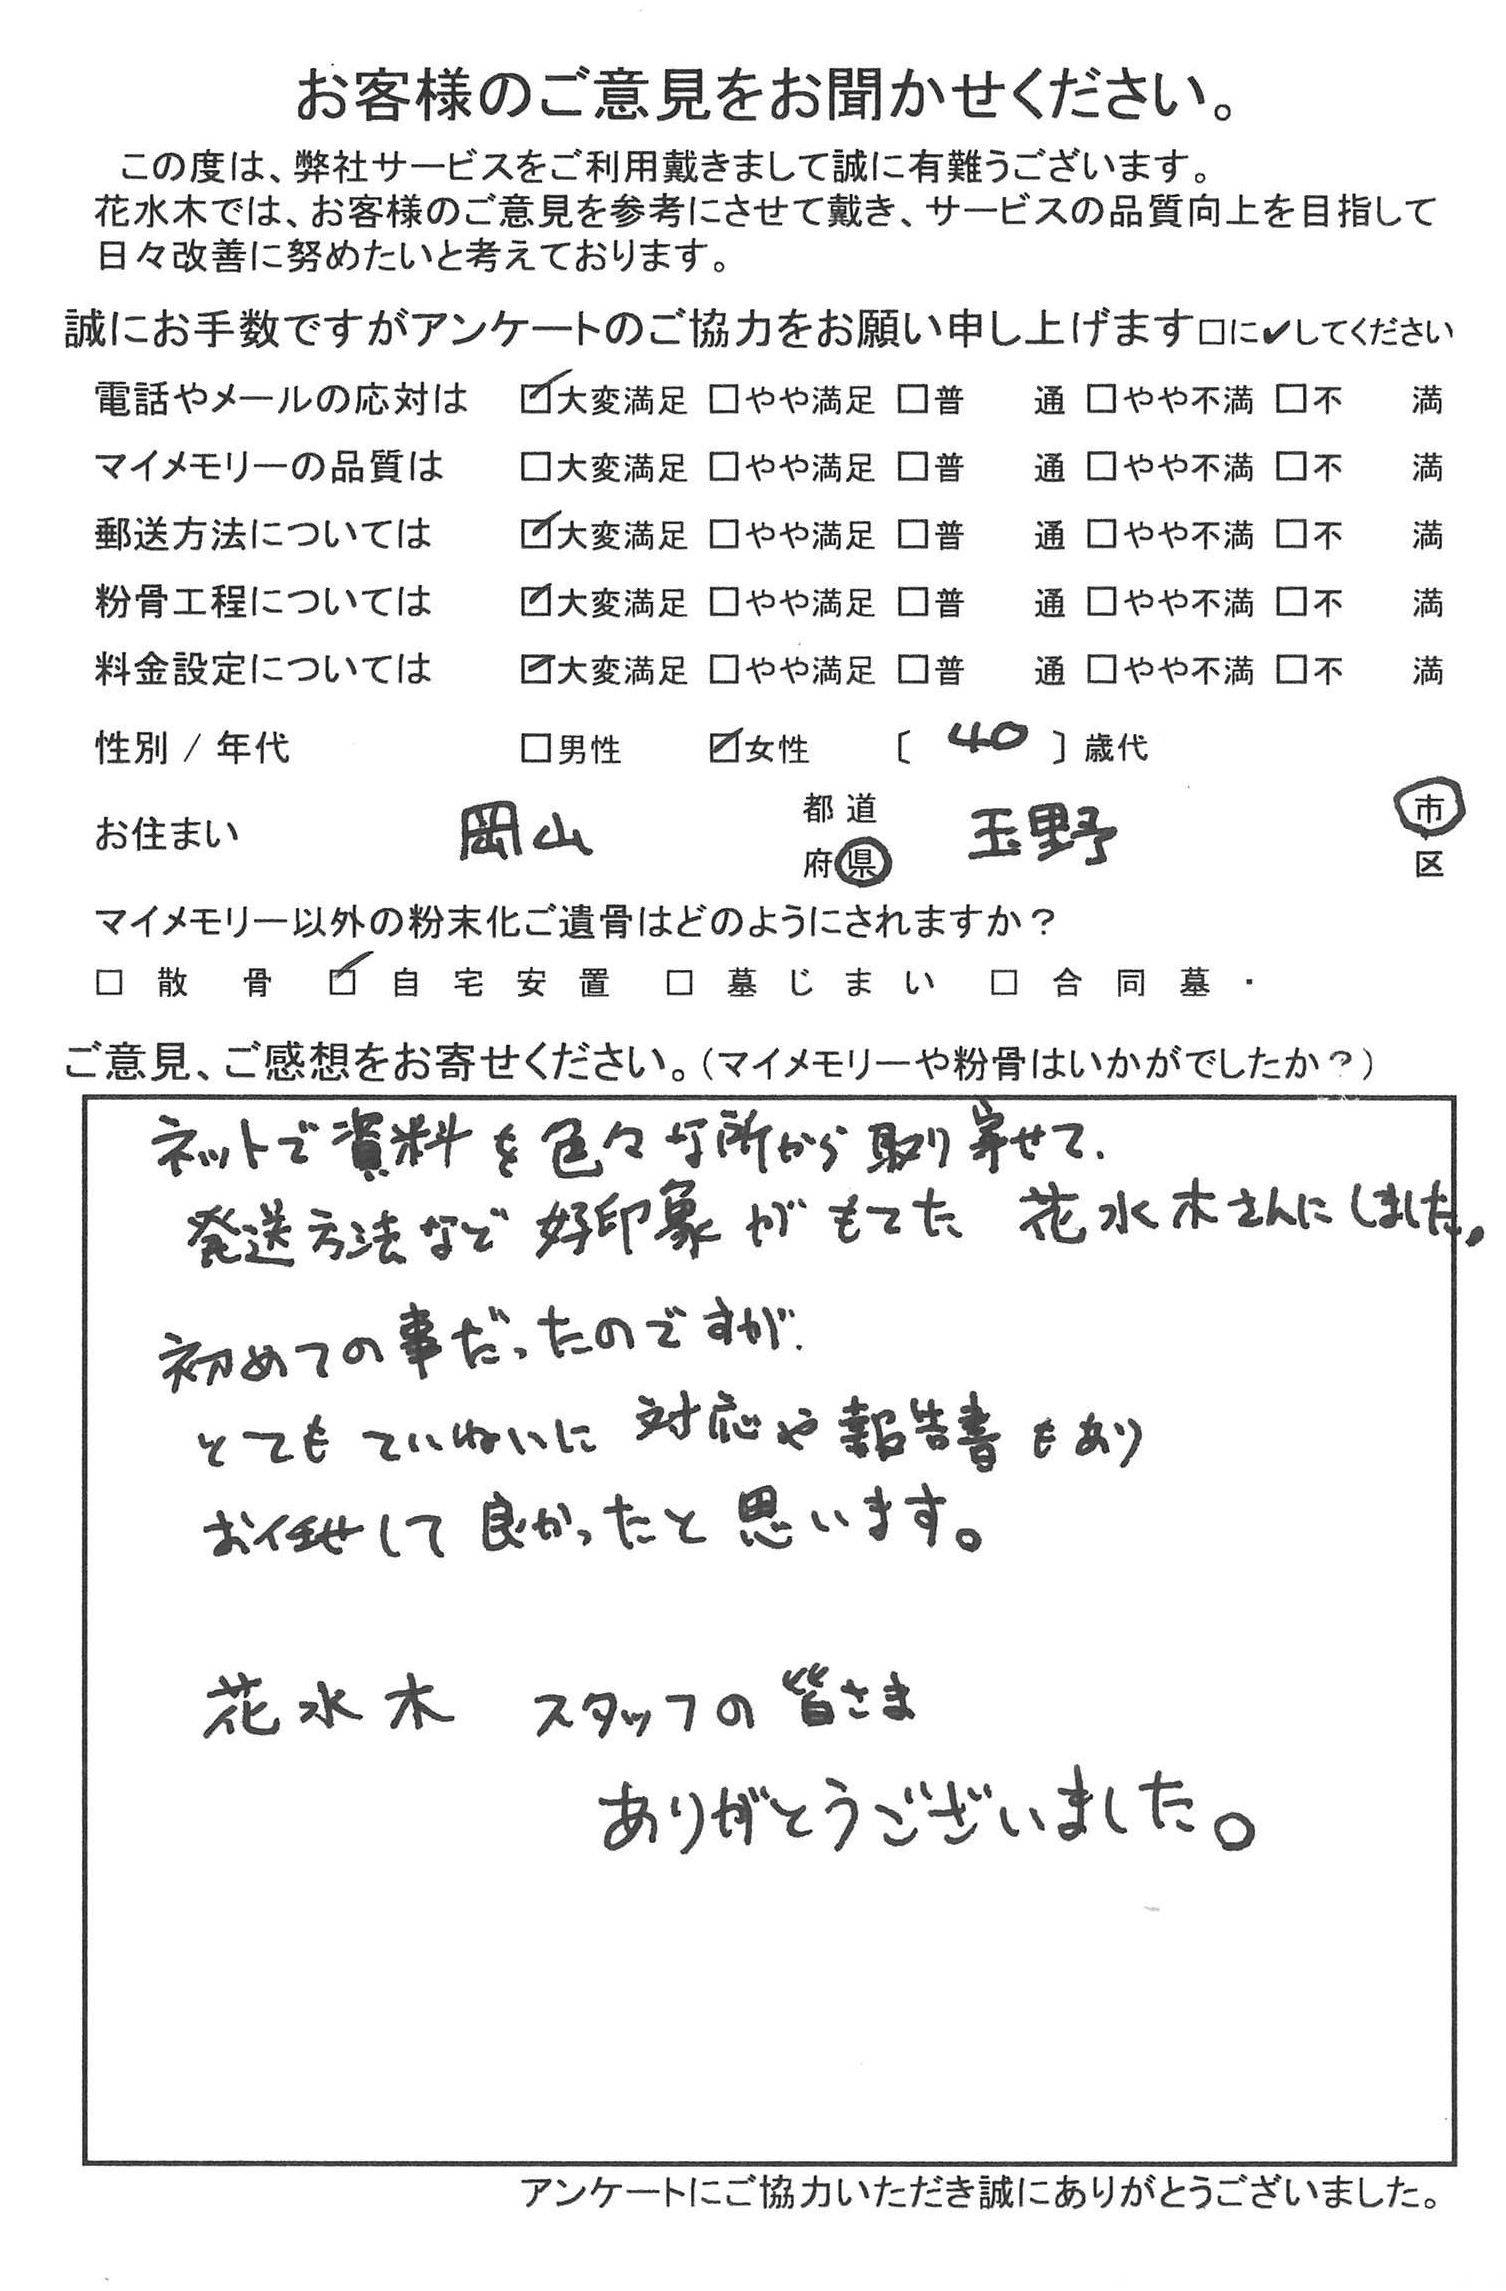 お客様のご意見をお聞かせください。
この度は、弊社サービスをご利用戴きまして誠に有難うございます。
花水木では、お客様のご意見を参考にさせて戴き、サービスの品質向上を目指して
日々改善に努めたいと考えております。
誠にお手数ですがアンケートのご協力をお願い申し上げます□に✔してください
電話やメールの応対は ☑大変満足 □やや満足 □普 通 □やや不満 □不 満
マイメモリーの品質は □大変満足 □やや満足 □普 通 □やや不満 □不 満
郵送方法については ☑大変満足 □やや満足 □普 通 □やや不満 □不 満
粉骨工程については ☑大変満足 □やや満足 □普 通 □やや不満 □不 満
料金設定については ☑大変満足 □やや満足 □普 通 □やや不満 □不 満
性別 / 年代 □男性 ☑女性 〔 40 〕歳代
お住まい 岡山 都道府県 玉野 市区
マイメモリー以外の粉末化ご遺骨はどのようにされますか？
□ 散 骨 ☑ 自宅安置 □ 墓じまい □ 合同墓・
ご意見、ご感想をお寄せください。（マイメモリーや粉骨はいかがでしたか？）
ネットで資料を色々な所から取り寄せて、
発送方法など好印象がもてた 花水木さんにしました。
初めての事だったのですが、
とてもていねいに対応や報告書もあり
お任せして良かったと思います。
花水木 スタッフの皆さま
ありがとうございました。
アンケートにご協力いただき誠にありがとうございました。